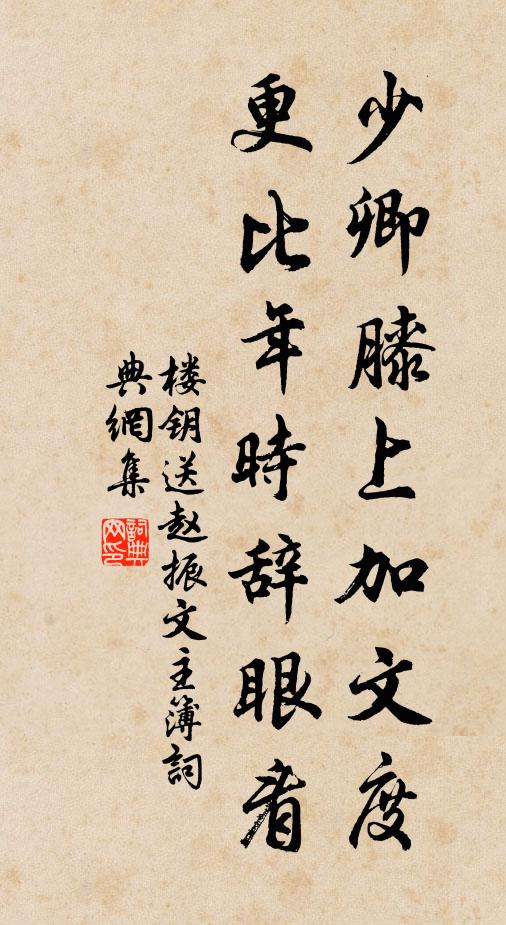 少卿膝上加文度
更比年時辞眼看
楼钥送赵振文主簿詞
典網集
詞典网印